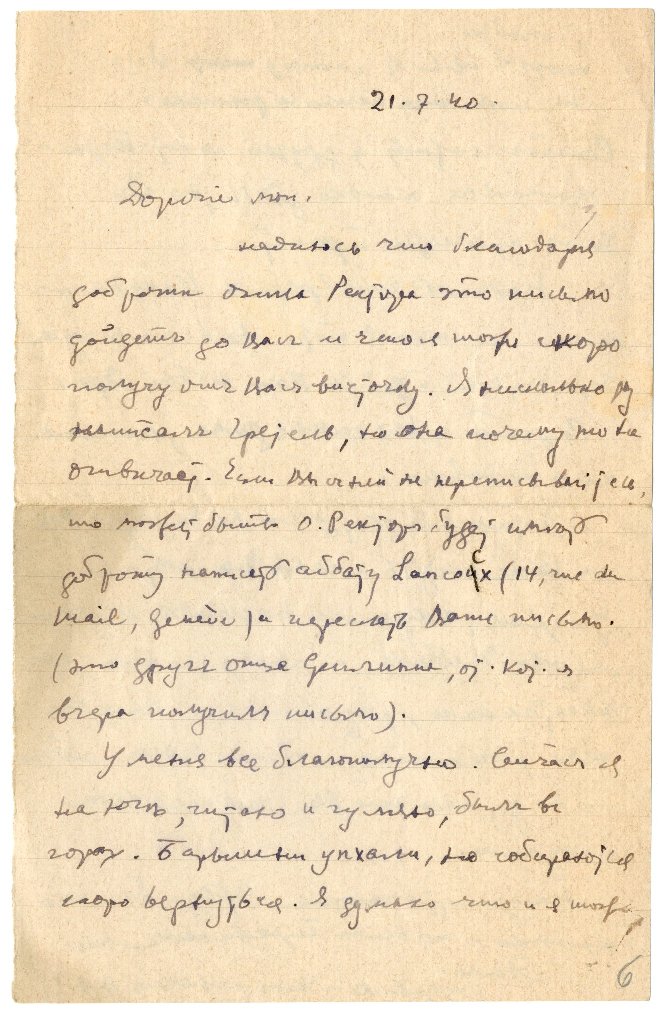 21.7.40.
Дорогiе мои.
надѣюсь что благодаря
добротѣ отца Ректора это письмо
дойдетъ до Васъ и что я тоже скоро
получу отъ Васъ вѣсточку. Я нѣсколько разъ
писалъ, но она почему то не
отвѣчает. Если Вы с ней не переписываетесь,
то может быть О. Ректоръ будет имѣть
доброту написать аббату Lancoux (14, rue du
Mail, Genève) и переслать Ваше письмо.
(это другъ отца, от кот. я
вчера получилъ письмо).
У меня все благополучно. Сейчасъ я
на югѣ, читаю и гуляю, былъ въ
горах. Барышни уѣхали, но собираются
скоро вернуться. Я думаю что и я тоже
6